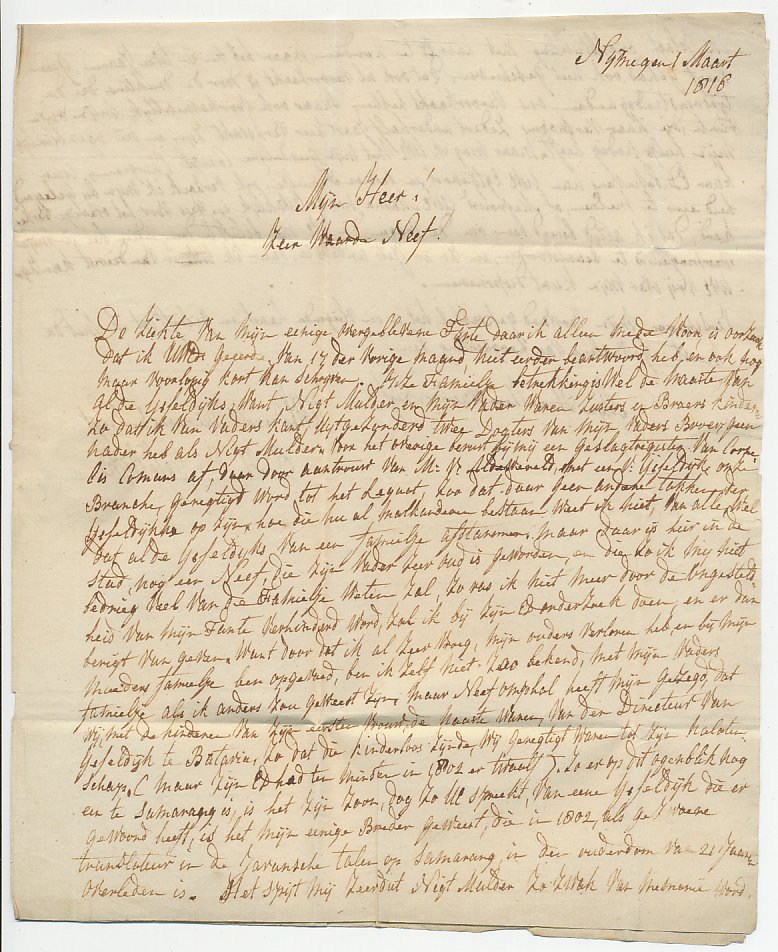 Nymegen 1 Maart
1818
Mijn Heer!
Zeer Waarde Neef!
De Ziekte van mijn eenige overgeblevene Tante daar ik alleen mede woon is oorzaak
dat ik UWEd Geeerde van 17 der vorige maand niet eerder beantwoord heb, en ook nog
maar voorlopig kort kan schryven. Ik ken Famielje betrekkingen wel de naaste van
al de Ysseldijks, want Nigt Mulder en mijn Vader waren Zusters en Broers kinderen
Zo dat ik van Vaders kant uytgezonderd twee Dogters van mijn Vaders Broer geen
nader heb als Nigt Mulder. Voor het overige berust bij mij een geslagtregister van Corne
lis Comans af, daar door aantoont van met een J: Ysseldijk onze
Branche, geregtigd word tot het Legaat, Zoo dat daar geen andere takken der
Ysseldijks op zijn, hoe die nu al malkanderen bestaan weet ik niet, van alle, wel
dat al de Ysseldijks van een famielje afstammen. maar daar is hier in de
Stad nog een Neef, die zijn Vader zeer oud is geworden, en die zo ik my niet
bedrieg veel van de Famielje weten zal, zo ras ik niet meer door de ongesteld
heid van mijn Tante verhinderd word, zal ik bij zijn Ed onderzoek doen, en er dan
berigt van geven. Want door dat ik al zeer vroeg, mijn ouders verloren heb, en bij mijn
moeders famielje ben opgevoed, ben ik zelf niet zoo bekend, met mijn Vaders
famielje als ik anders zou geweest zijn, maar Neef heeft mijn gezegd, dat
wij, met de kinderen van zijn eersten vrouw, de naaste waren, van den Directeur van
Ysseldijk te Batavia, zo dat die kinderloos zijnde, wij geregtigd waren tot zijn nalaten
schap. (maar zijn Ed had ten minsten in 1802 er twaalf). Zo er op dit ogenblik nog
een te Samarang is, is het zijn zoon, dog zo UE spreekt, van eene Ysseldijk die er
gewoond heeft, is het mijn eenige Broeder geweest, die in 1802, als gezwoore
translateur in de Javansche talen op Samarang, in den ouderdom van 21 Jaaren
overleden is. Het spijt mij zeer dat Nigt Mulder zo zwak van memorie word.